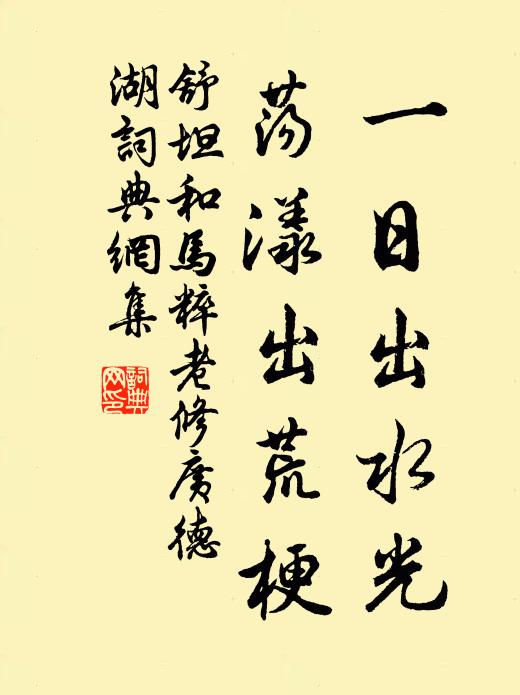 一日出水光
荡漾出荒梗
舒坦和馬粹老修廣德
湖詞典網集
詞典
网印